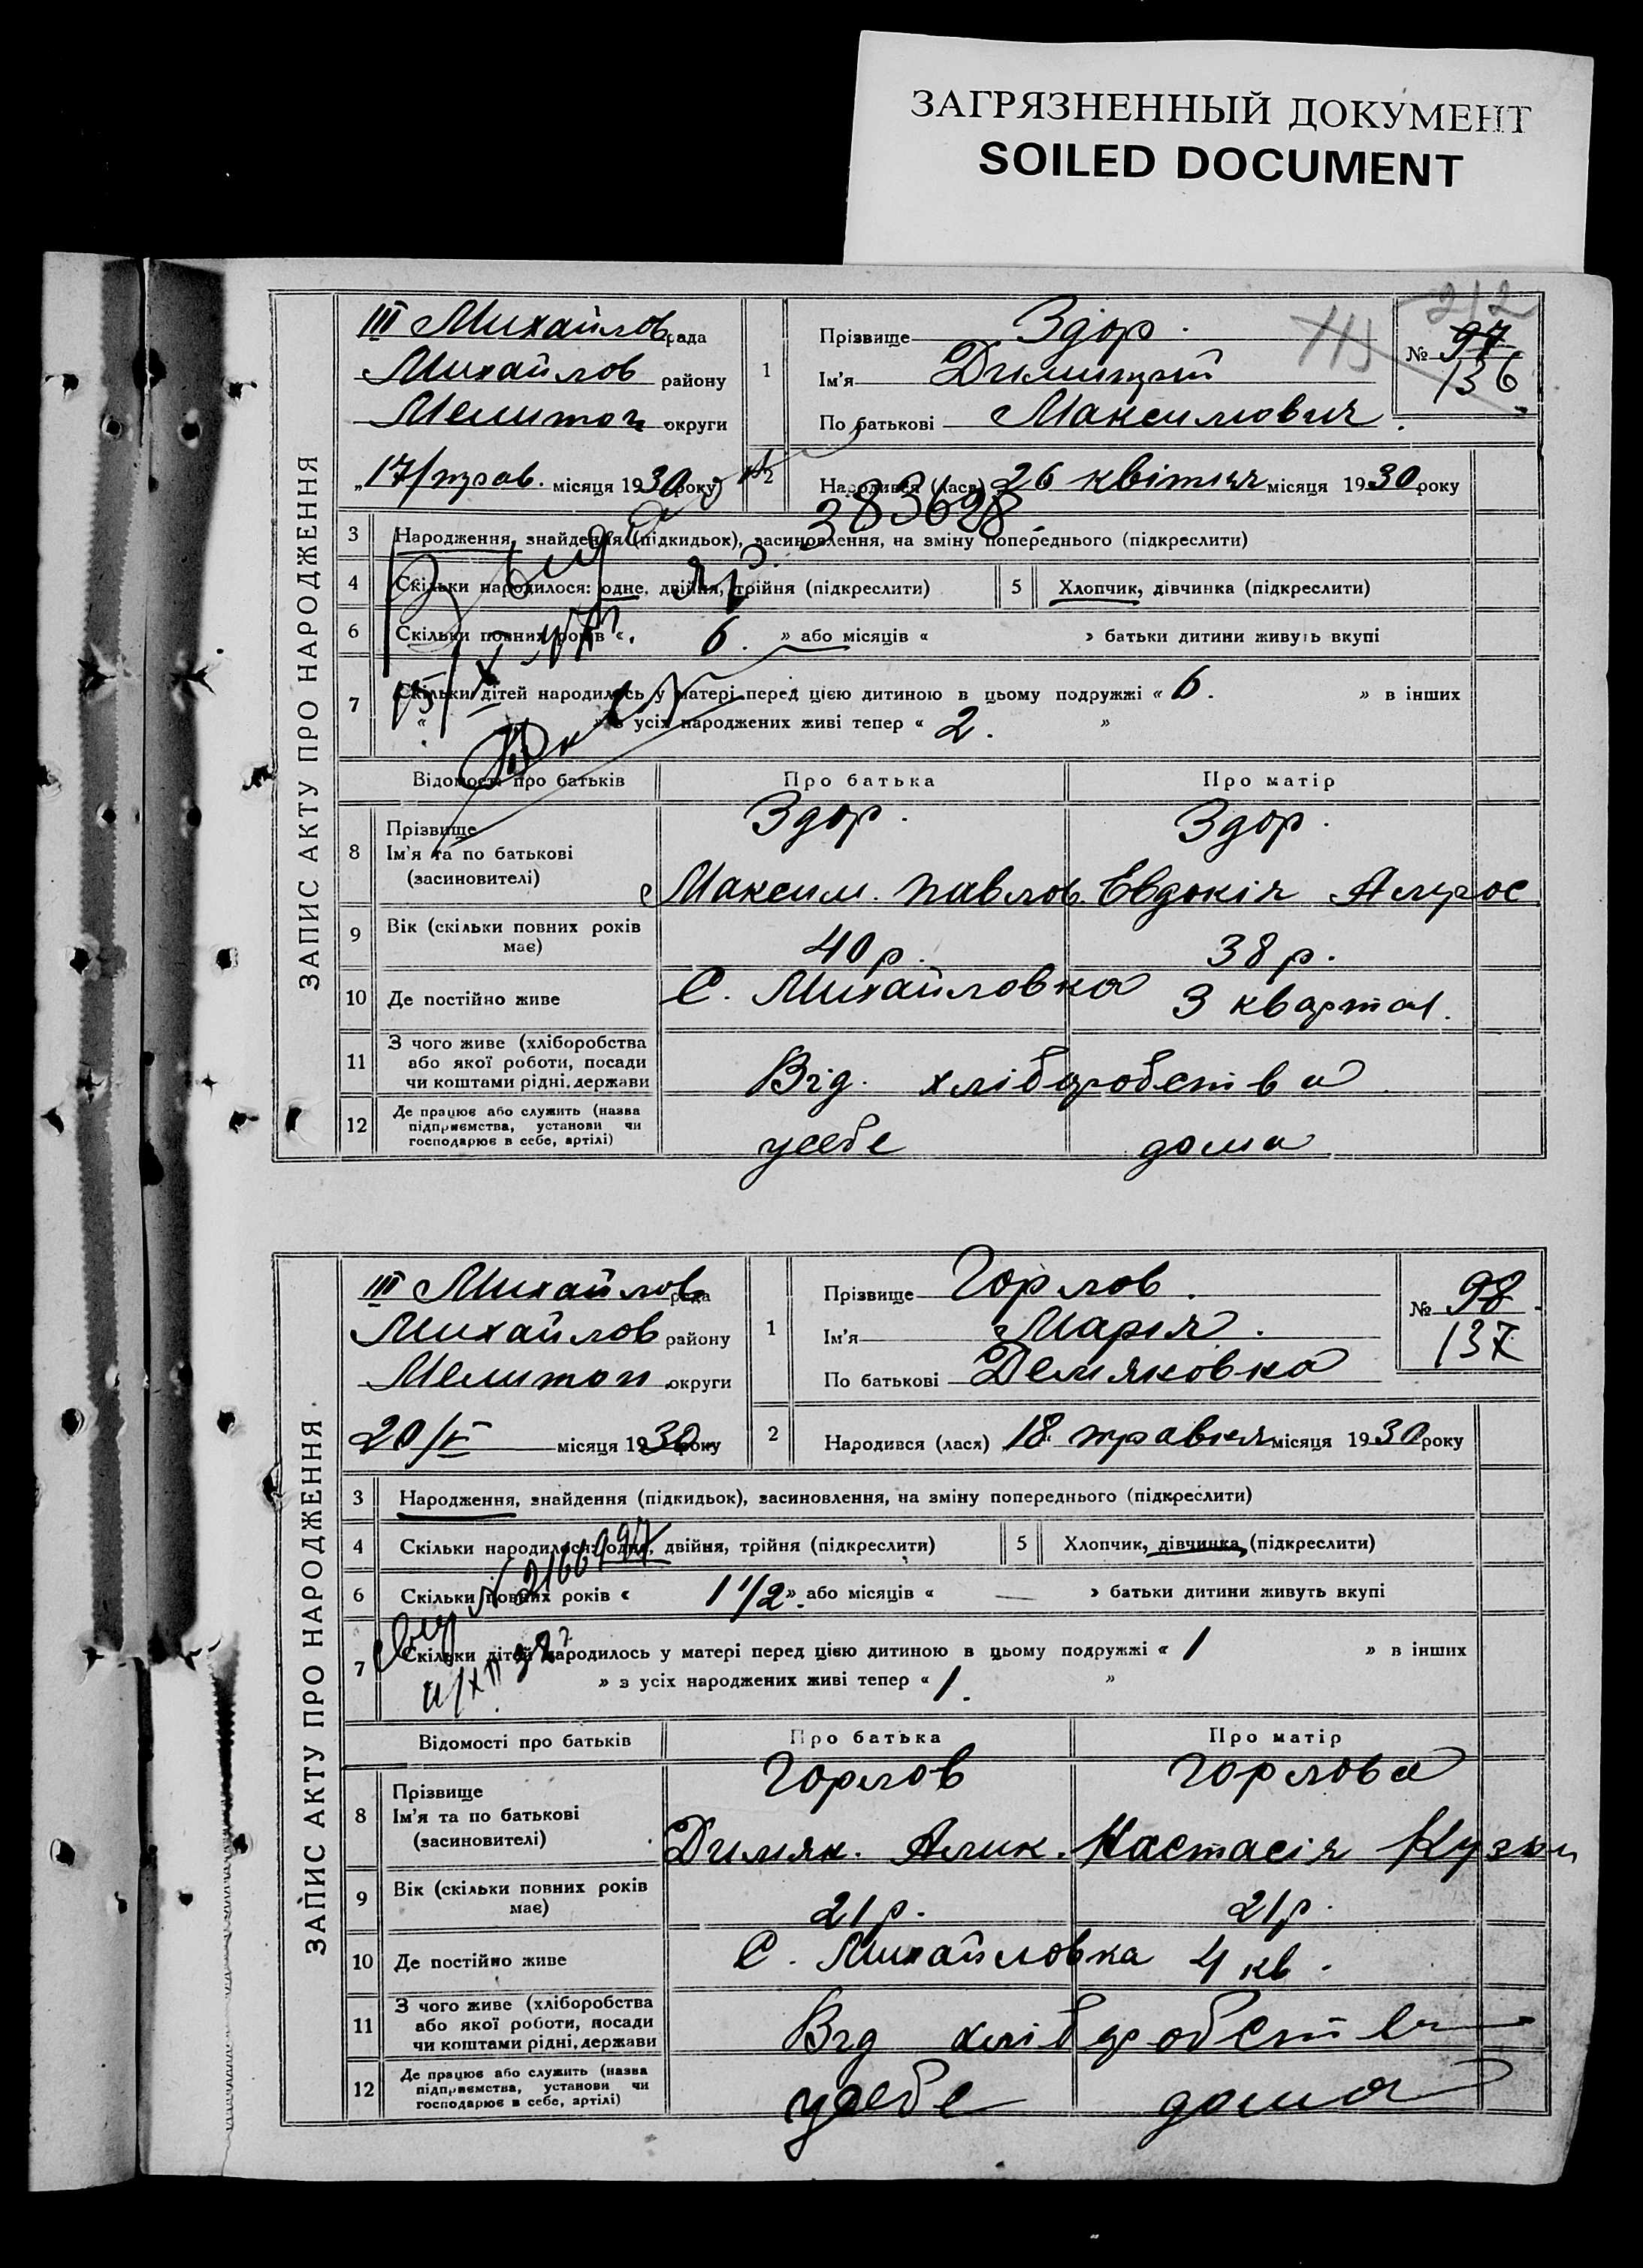 ЗАГРЯЗНЕННЫЙ ДОКУМЕНТ
SOILED DOCUMENT
212
ЗАПИС АКТУ ПРО НАРОДЖЕННЯ
III Михайлов рада
Михайлов району
Мелитоп округи
„17/трав. місяця 1930 року
1
Прізвище Здор.
Ім'я Димитрій
По батькові Максимович.
№ 97
136
2 Народився (лася) 26 квітня місяця 1930 року
383628
3 Народження, знайдення (підкидьок), засиновлення, на зміну попереднього (підкреслити)
4 Скільки народилося: одне, двійня, трійня (підкреслити) 5 Хлопчик, дівчинка (підкреслити)
6 Скільки повних років « 6. » або місяців « » батьки дитини живуть вкупі
7 Скільки дітей народилось у матері перед цією дитиною в цьому подружжі « 6. » в інших
« » з усіх народжених живі тепер « 2. »
Відомості про батьків Про батька Про матір
8 Прізвище
Ім'я та по батькові
(засиновителі)
Здор. Здор.
Максим. Павлов. Евдокія Амрос
9 Вік (скільки повних років
має)
40 р. 38 р.
10 Де постійно живе С. Михайловка 3 квартал.
11 З чого живе (хліборобства
або якої роботи, посади
чи коштами рідні, держави
Від. хліборобства
12 Де працює або служить (назва
підприємства, установи чи
господарює в себе, артілі)
усебе дома
ЗАПИС АКТУ ПРО НАРОДЖЕННЯ
III Михайлов рада
Михайлов району
Мелитоп округи
20/V місяця 1930 року
1
Прізвище Горлов.
Ім'я Марія.
По батькові Демяковка
№ 98
137
2 Народився (лася) 18 травня місяця 1930 року
3 Народження, знайдення (підкидьок), засиновлення, на зміну попереднього (підкреслити)
4 Скільки народилося: одне, двійня, трійня (підкреслити) 5 Хлопчик, дівчинка, (підкреслити)
6 Скільки повних років « 1 1/2 » або місяців « — » батьки дитини живуть вкупі
7 Скільки дітей народилось у матері перед цією дитиною в цьому подружжі « 1 » в інших
» з усіх народжених живі тепер « 1. »
Відомості про батьків Про батька Про матір
8 Прізвище
Ім'я та по батькові
(засиновителі)
Горлов Горлова
Димяк. Амик. Настасія Кузьм
9 Вік (скільки повних років
має)
21 р. 21 р.
10 Де постійно живе С. Михайловка 4 кв.
11 З чого живе (хліборобства
або якої роботи, посади
чи коштами рідні, держави
Від хліборобств
12 Де працює або служить (назва
підприємства, установи чи
господарює в себе, артілі)
усебе дома